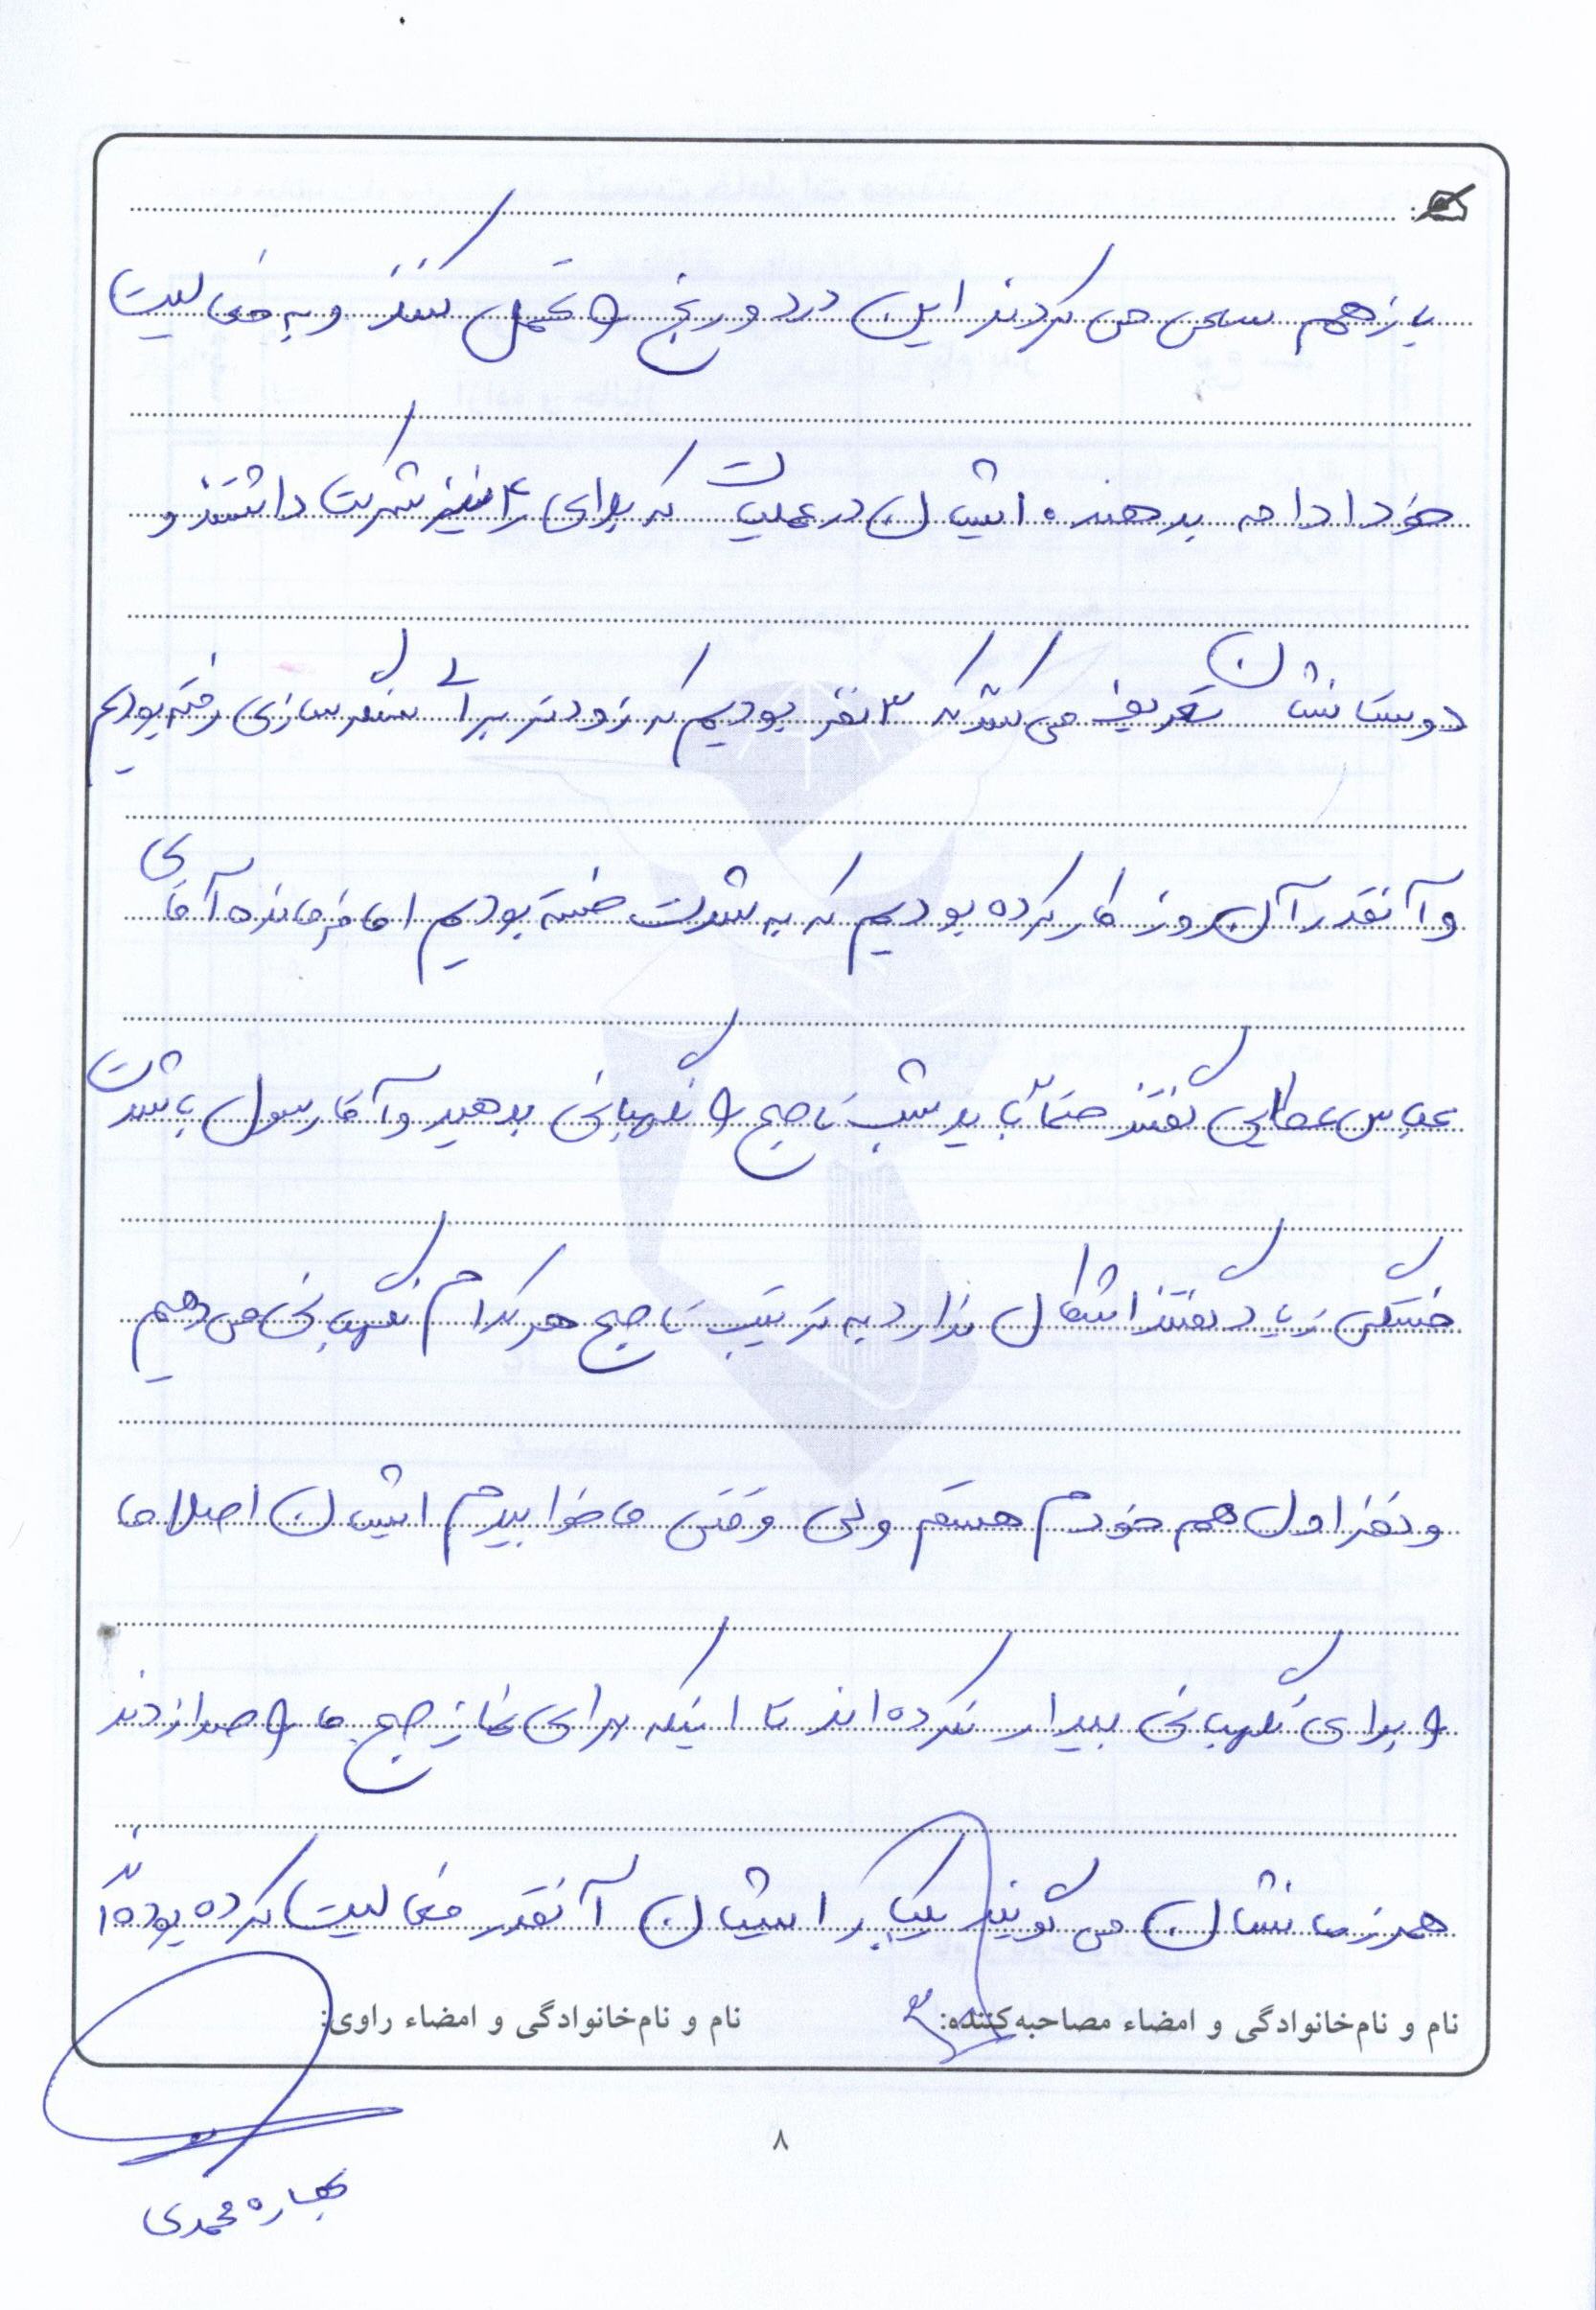 باز هم سعی می کردند این درد و رنج را تحمل کنند و به فعالیت
خود ادامه بدهند. ایشان در عملیات کربلای ۴ نیز شرکت داشتند و
دوستانشان تعریف می کنند که ۳ نفر بودیم که زودتر برای سنگرسازی رفته بودیم
و آنقدر آن روز کار کرده بودیم که به شدت خسته بودیم اما فرمانده آقای
عباس عطایی گفتند حتماً باید شب تا صبح را نگهبانی بدهید و آقا رسول با شدت
خستگی زیاد گفتند اشکال ندارد به ترتیب تا صبح هر کدام نگهبانی می دهیم
و نفر اول هم خودم هستم ولی وقتی ما خوابیدیم ایشان اصلا ما
را برای نگهبانی بیدار نکرده اند تا اینکه برای نماز صبح ما را صدا زدند
همرزمانشان می گویند یکبار ایشان آنقدر فعالیت کرده بوده اند
نام و نام‌خانوادگی و امضاء مصاحبه‌کننده: نام و نام‌خانوادگی و امضاء راوی:
۸
بهاره محمدی